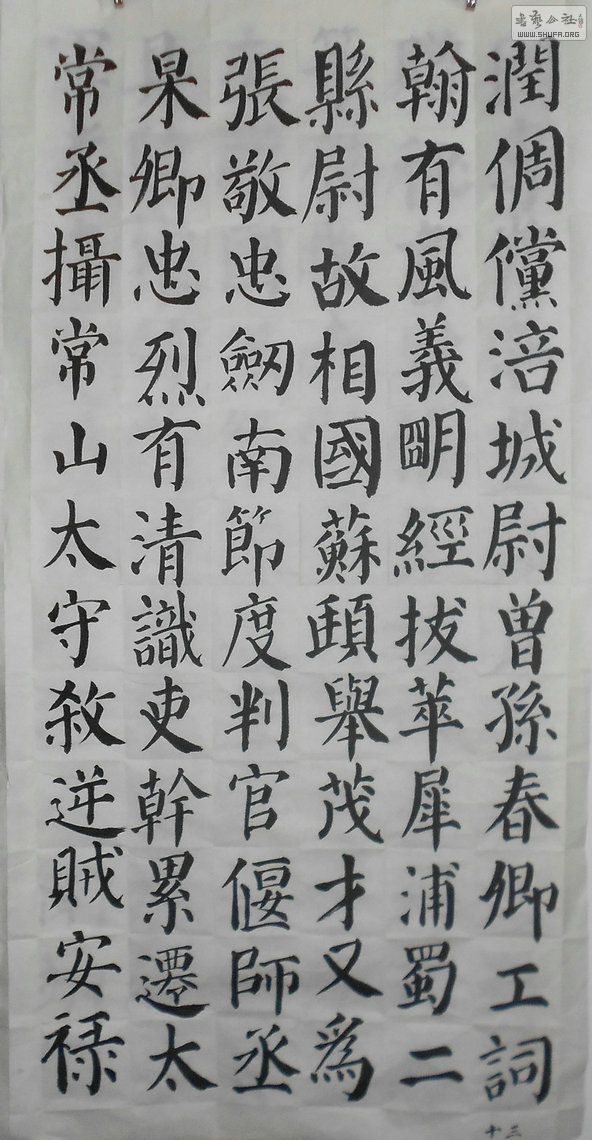 書藝公社
WWW.SHUFA.ORG
潤倜儻涪城尉曽孫春卿工詞
翰有風義朙經拔萃犀浦蜀二
縣尉故相國蘇頲舉茂才又為
張敬忠劒南節度判官偃師丞
杲卿忠烈有清識吏幹累遷太
常丞攝常山太守殺逆賊安禄
十三